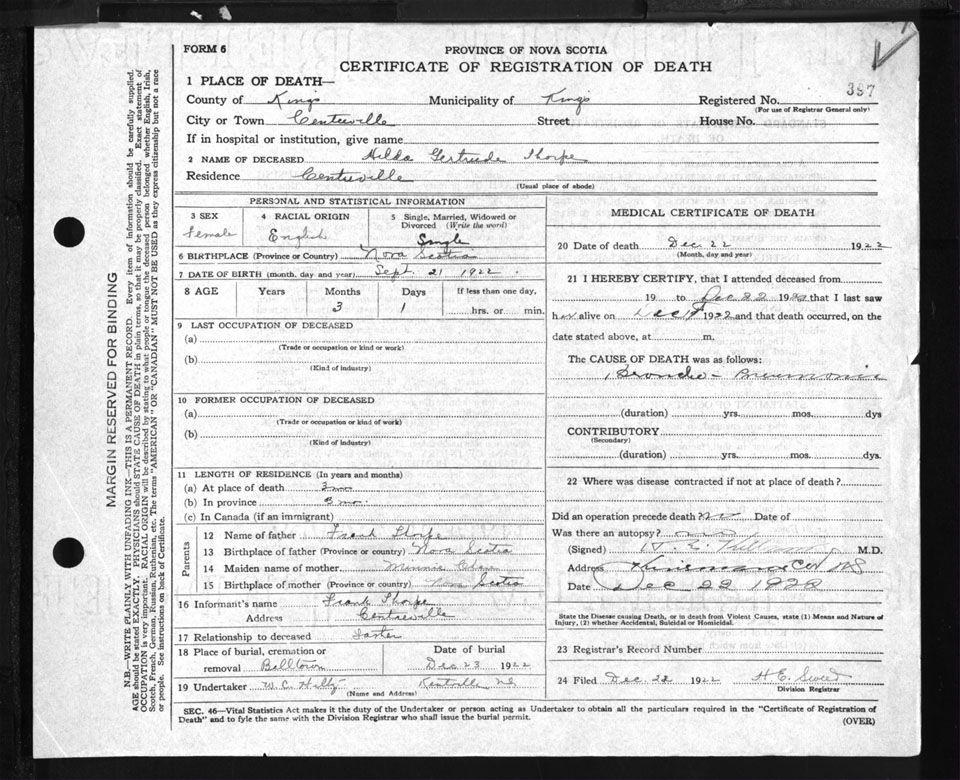 FORM 6
PROVINCE OF NOVA SCOTIA
CERTIFICATE OF REGISTRATION OF DEATH
1 PLACE OF DEATH—
County of Kings Municipality of Kings Registered No. 387
(For use of Registrar General only)
City or Town Centreville Street House No.
If in hospital or institution, give name
2 NAME OF DECEASED Hilda Gertrude Thorpe
Residence Centreville
(Usual place of abode)
PERSONAL AND STATISTICAL INFORMATION
3 SEX 4 RACIAL ORIGIN 5 Single, Married, Widowed or
Divorced (Write the word)
Female English Single
6 BIRTHPLACE (Province or Country) Nova Scotia
7 DATE OF BIRTH (month, day and year) Sept. 21 1922
8 AGE Years Months Days If less than one day,
3 1 hrs. or min.
9 LAST OCCUPATION OF DECEASED
(a)
(Trade or occupation or kind or work)
(b)
(Kind of industry)
10 FORMER OCCUPATION OF DECEASED
(a)
(Trade or occupation or kind of work)
(b)
(Kind of industry)
11 LENGTH OF RESIDENCE (In years and months)
(a) At place of death 3 mo
(b) In province 3 mo.
(c) In Canada (if an immigrant)
Parents
12 Name of father Frank Thorpe
13 Birthplace of father (Province or country) Nova Scotia
14 Maiden name of mother Minnie
15 Birthplace of mother (Province or country) Nova Scotia
16 Informant's name Frank Thorpe
Address Centreville
17 Relationship to deceased
18 Place of burial, cremation or Date of burial
removal Belltown Dec 23 1922
19 Undertaker W. C. Kentville NS
(Name and Address)
MEDICAL CERTIFICATE OF DEATH
20 Date of death Dec. 22 1922
(Month, day and year)
21 I HEREBY CERTIFY, that I attended deceased from
19 to Dec 22 1922 that I last saw
h er alive on Dec 19 1922 and that death occurred, on the
date stated above, at m.
The CAUSE OF DEATH was as follows:
Broncho - Pneumonia
(duration) yrs. mos. dys
CONTRIBUTORY
(Secondary)
(duration) yrs. mos. dys.
22 Where was disease contracted if not at place of death?
Did an operation precede death? no Date of
Was there an autopsy? no
(Signed) M.D.
Address NS
Date Dec 22 1922
State the Disease causing Death, or in death from Violent Causes, state (1) Means and Nature of
Injury, (2) whether Accidental, Suicidal or Homicidal.
23 Registrar's Record Number
24 Filed Dec. 22 1922 H E
Division Registrar
SEC. 46—Vital Statistics Act makes it the duty of the Undertaker or person acting as Undertaker to obtain all the particulars required in the "Certificate of Registration of
Death" and to fyle the same with the Division Registrar who shall issue the burial permit.
(OVER)
MARGIN RESERVED FOR BINDING
N.B.—WRITE PLAINLY WITH UNFADING INK—THIS IS A PERMANENT RECORD. Every item of information should be carefully supplied.
AGE should be stated EXACTLY. PHYSICIANS should STATE CAUSE OF DEATH in plain terms, so that it may be properly classified. Exact statement of
OCCUPATION is very important. RACIAL ORIGIN will be described by stating to what people or tongue the deceased person belonged whether English, Irish,
Scotch, French, German, Russian, Ruthenian, etc. The terms "AMERICAN" OR "CANADIAN" MUST NOT BE USED as they express citizenship but not a race
or people. See instructions on back of Certificate.